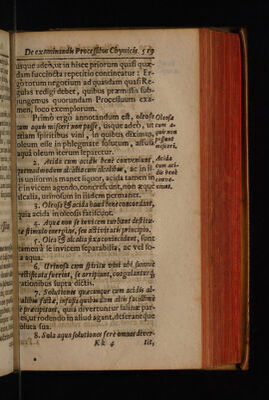 De examinandis Processibus Chymicis. 519
usque adeò, ut in hisce priorum quasi quædam
succincta repetitio contineatur : Ergo
totum negotium ad quasdam quasi Regulas
redigi debet, quibus præmissis subjungemus
quorundam Processuum examen,
loco exemplorum.
Primò ergo annotandum est, oleosa
cum aquis misceri non posse, usque adeò, ut
etiam spiritibus vini, in quibus diximus,
oleum esse in phlegmate solutum, affusa
aquâ oleum iterum separetur.
Oleosa
cum a-
quis non
possunt
misceri.
2. Acida cum acidis benè conveniunt,
in
is uniformis manet liquor, acida tamen in
se invicem agendo, concrescunt, non æquè
alcalia, urinosum in iisdem permanet.
Acida
cum aci-
dis benè
conve-
niunt.
3. Oleosa & acida haud benè concordant,
quia acida in oleosis fatiscunt.
4. Aquæ non se invicem turbant
stimulo energiæ, seu activitatis principio.
5. Olea & alcalia fixa consociant, sont
tamen à se invicem separabilia, ac vel sola
aqua.
6. Urinosa cum spiritu vini ubi summè
rectificata fuerint, se arripiunt, coagulantur
rationibus supra dictis.
7. Solutiones quæcunque cum acidis
factæ, infusis quibusdam aliis facillimè
præcipitant, quia divertuntur salinæ partes,
ut rodendo in aliud agant, deserantque
soluta sua.
8. Sola aqua solutiones ferè omnes diver-
Kk 4 tit,